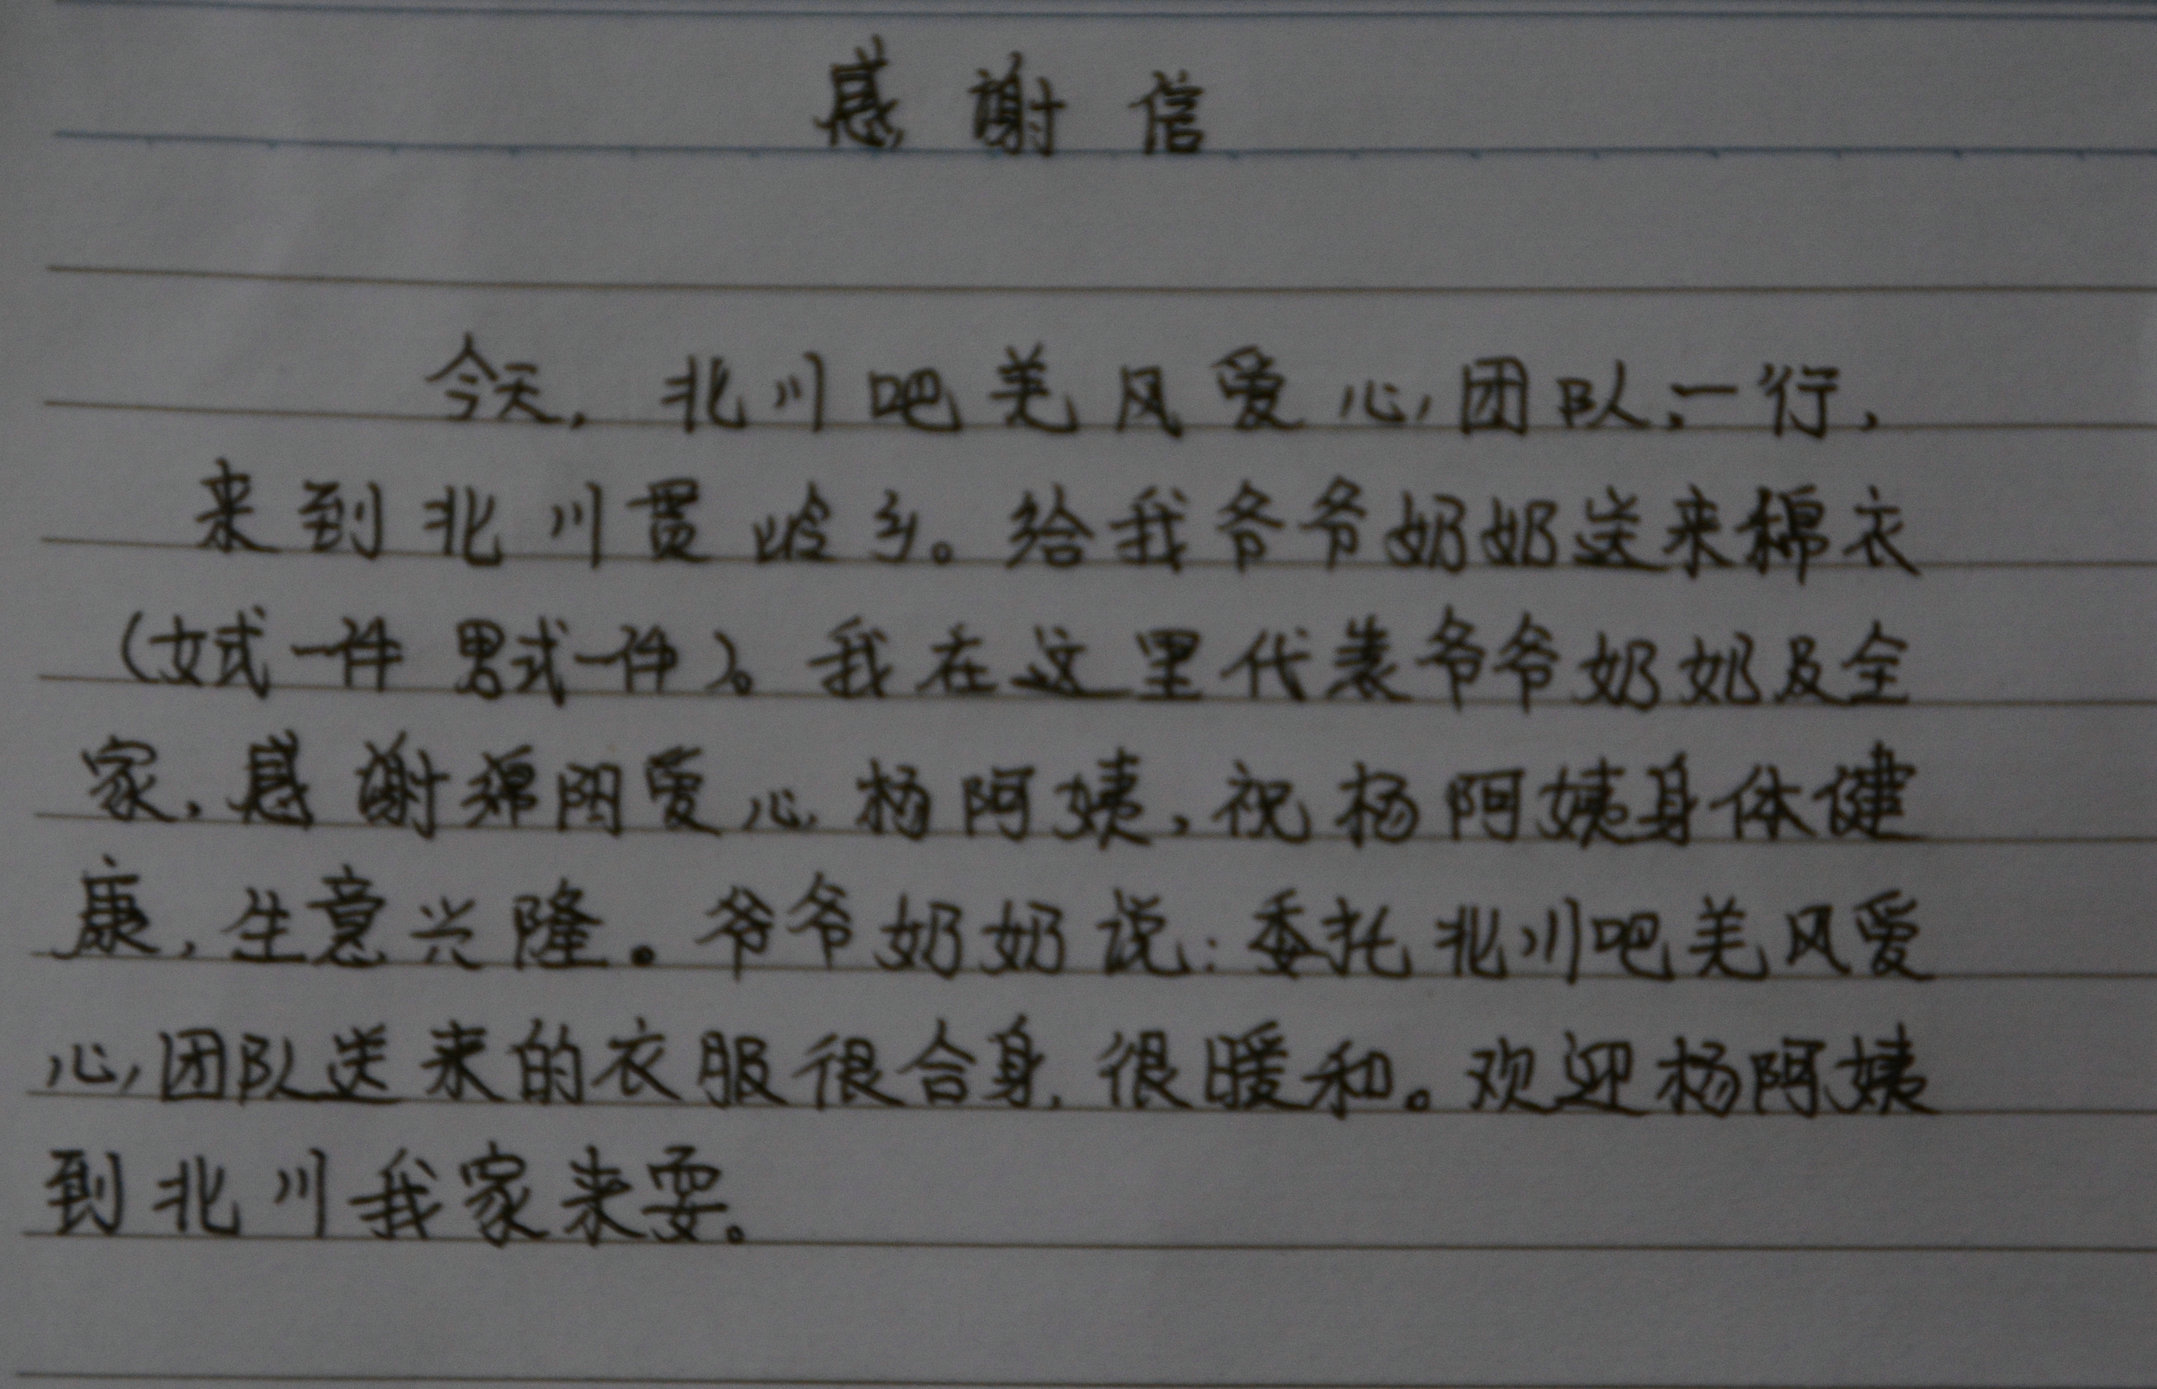 感谢信
今天，北川吧羌风爱心团队一行，
来到北川贯岭乡。给我爷爷奶奶送来棉衣
（女式一件 男式一件）。我在这里代表爷爷奶奶及全
家，感谢绵阳爱心杨阿姨，祝杨阿姨身体健
康，生意兴隆。爷爷奶奶说：委托北川吧羌风爱
心团队送来的衣服很合身，很暖和。欢迎杨阿姨
到北川我家来耍。